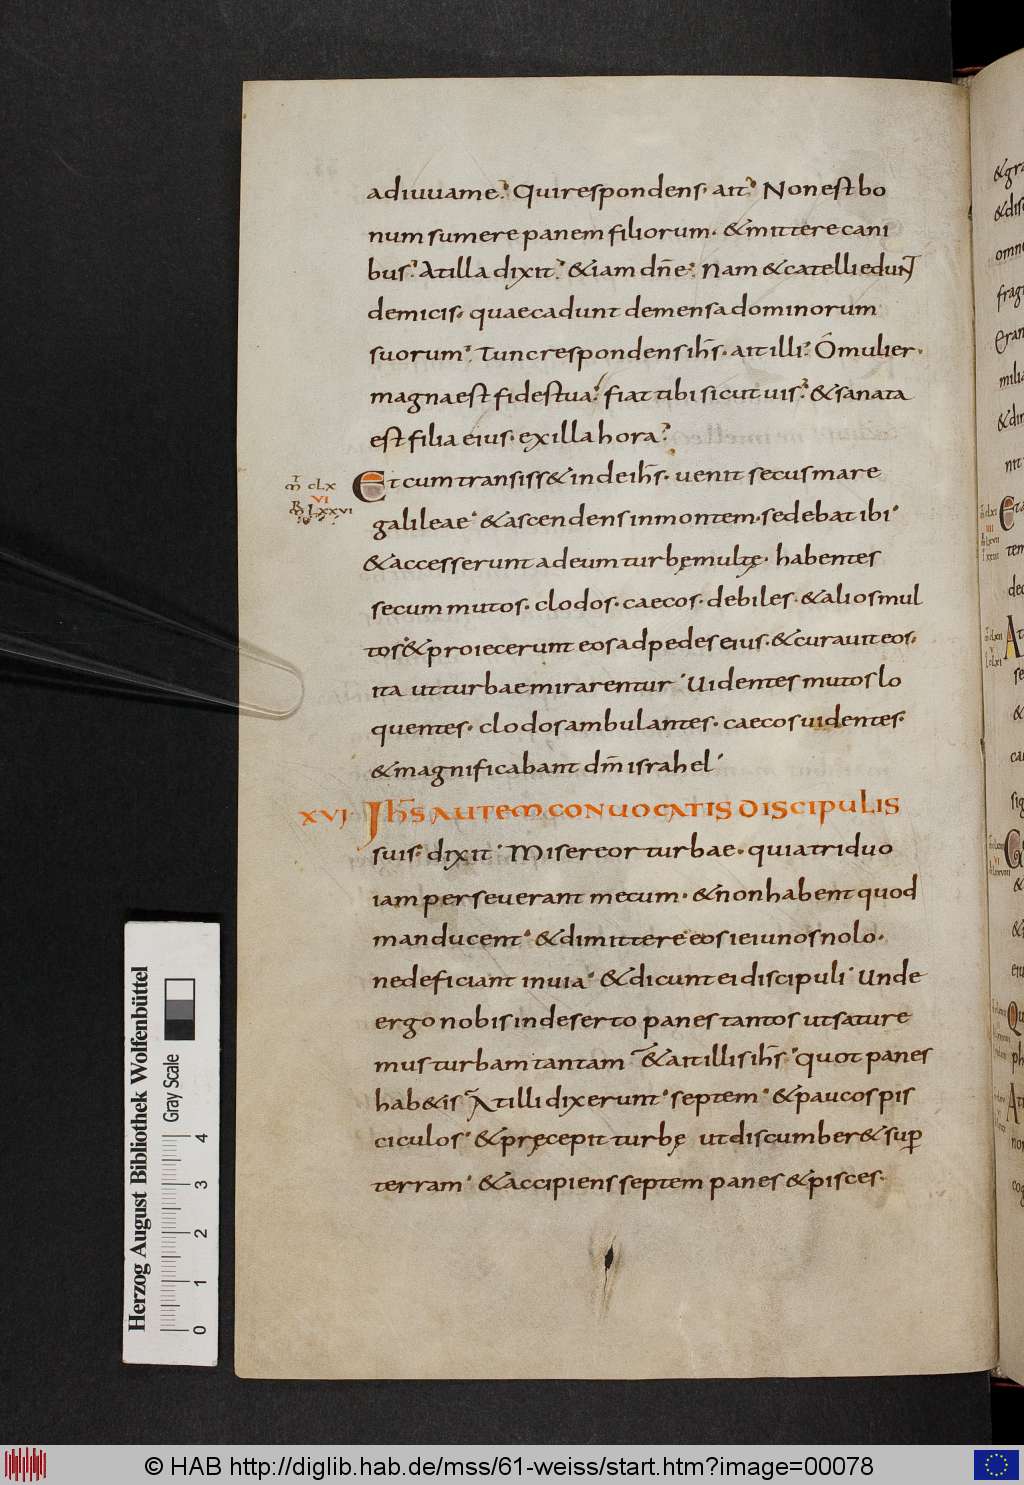 adiuuame. Qui respondens. ait. Non est bo
num sumere panem filiorum. & mittere cani
bus. At illa dixit. & iam dñe. Nam & catelli edunt
de micis. quae cadunt de mensa dominorum
suorum. Tunc respondens ih̅s. ait illi. O mulier.
magna est fides tua. fiat tibi sicut uis. & sanata
est filia eius. ex illa hora.
Et cum transiss& inde ih̅s. uenit secus mare
galileae. & ascendens in montem. sedebat ibi.
& accesserunt ad eum turbę multę. habentes
secum mutos. clodos. caecos. debiles. & alios mul
tos. & proiecerunt eos ad pedes eius. & curauit eos.
ita ut turbae mirarentur. Uidentes mutos lo
quentes. clodos ambulantes. caecos uidentes.
& magnificabant dm̅ israhel.
XVI Ih̅s AUTEM CONUOCATIS DISCIPULIS
suis. dixit. Misereor turbae. quia triduo
iam perseuerant mecum. & non habent quod
manducent. & dimittere eos ieiunos nolo.
ne deficiant in uia. & dicunt ei discipuli. Unde
ergo nobis in deserto panes tantos ut sature
mus turbam tantam. & ait illis ih̅s. quot panes
hab&is. At illi dixerunt. septem. & paucos pis
ciculos. & pręcepit turbę ut discumber& sup̅
terram. & accipiens septem panes & pisces.
Herzog August Bibliothek Wolfenbüttel
Gray Scale
0 1 2 3 4
© HAB http://diglib.hab.de/mss/61-weiss/start.htm?image=00078